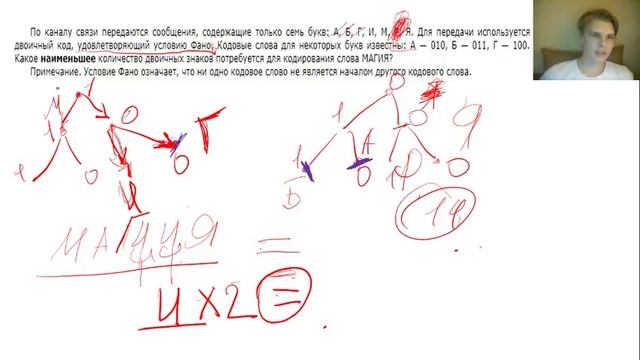 По каналу связи передаются сообщения, содержащие только семь букв: А, Б, Г, И, М, Р, Я. Для передачи используется
двоичный код, удовлетворяющий условию Фано. Кодовые слова для некоторых букв известны: А — 010, Б — 011, Г — 100.
Какое наименьшее количество двоичных знаков потребуется для кодирования слова МАГИЯ?
Примечание. Условие Фано означает, что ни одно кодовое слово не является началом другого кодового слова.
М 1 0 Г
1 0 0
1 0
1 0 Я
1 А 1 0
Б 0
14
МАГИЯ =
4 X 2 =